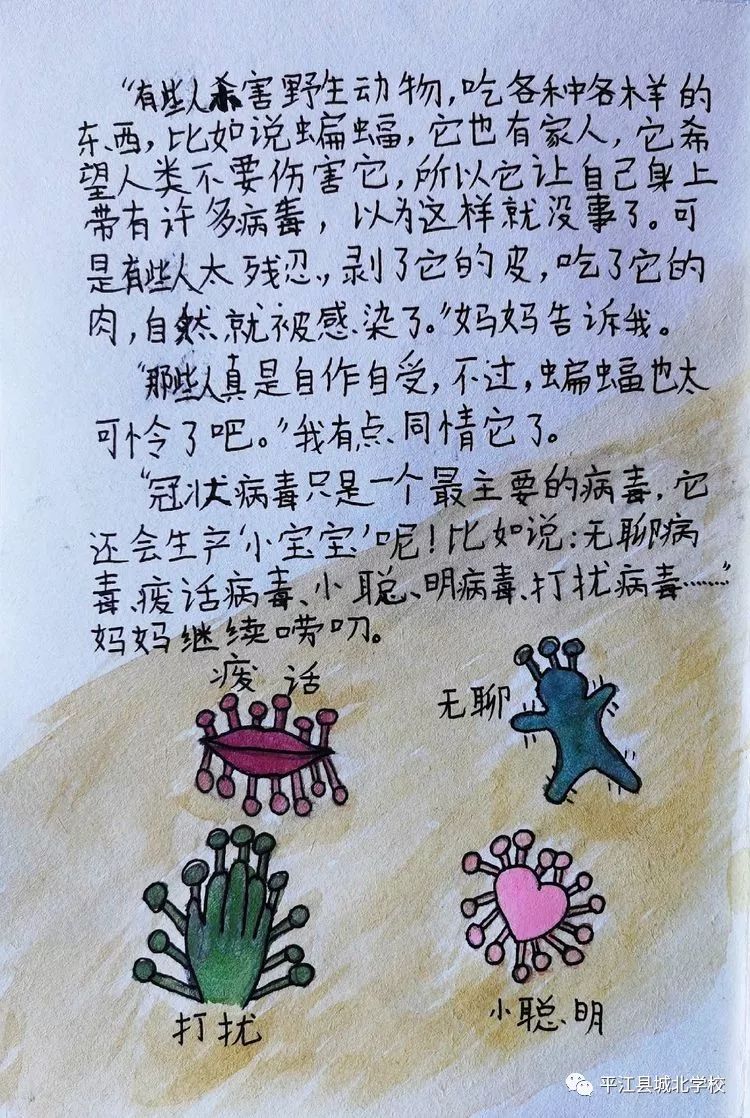 “有些人杀害野生动物，吃各种各样的
东西，比如说蝙蝠，它也有家人，它希
望人类不要伤害它，所以它让自己身上
带有许多病毒，以为这样就没事了。可
是有些人太残忍，剥了它的皮，吃了它的
肉，自然就被感染了。”妈妈告诉我。
“那些人真是自作自受，不过，蝙蝠也太
可怜了吧。”我有点同情它了。
“冠状病毒只是一个最主要的病毒，它
还会生产‘小宝宝’呢！比如说：无聊病
毒、废话病毒、小聪明病毒、打扰病毒……”
妈妈继续唠叨。
废话
无聊
打扰
小聪明
平江县城北学校